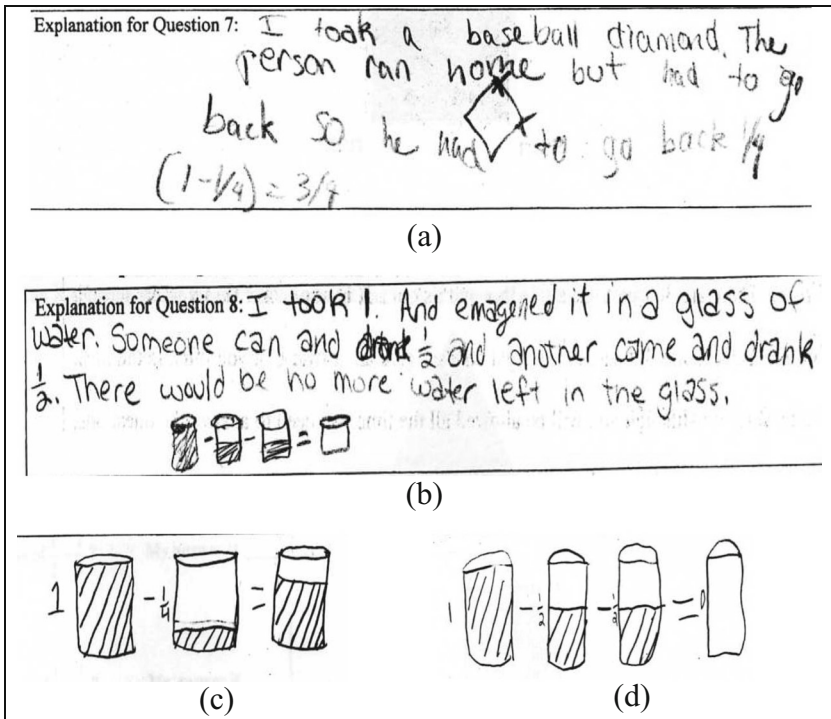 Explanation for Question 7: I took a baseball diamond. The
person ran home but had to go
back so he had to go back 1/4
(1-1/4) = 3/4
(a)
Explanation for Question 8: I took 1. And emagened it in a glass of
water. Someone can and drank 1/2 and another came and drank
1/2. There would be no more water left in the glass.
- - =
(b)
1 - 1/4 =
1 - 1/2 - 1/2 = 0
(c)
(d)